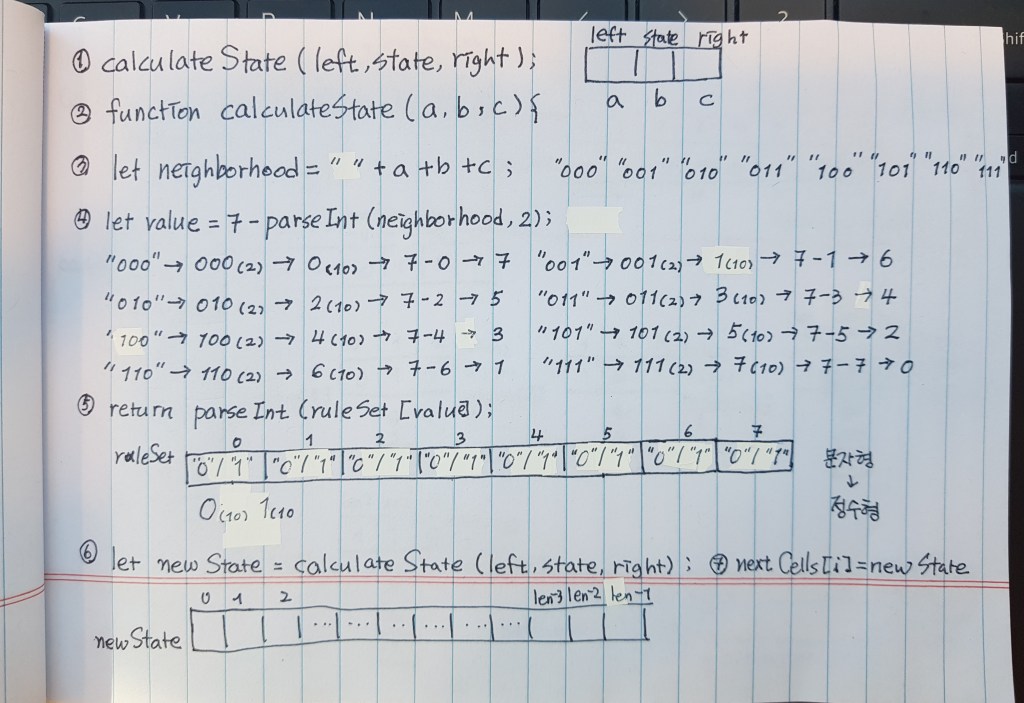 left state right
① calculateState (left, state, right);
a b c
② function calculateState (a, b, c) {
③ let neighborhood = " " + a + b + c ; "000" "001" "010" "011" "100" "101" "110" "111"
④ let value = 7 - parseInt (neighborhood, 2);
"000" → 000(2) → 0(10) → 7-0 → 7 "001" → 001(2) → 1(10) → 7-1 → 6
"010" → 010(2) → 2(10) → 7-2 → 5 "011" → 011(2) → 3(10) → 7-3 → 4
"100" → 100(2) → 4(10) → 7-4 → 3 "101" → 101(2) → 5(10) → 7-5 → 2
"110" → 110(2) → 6(10) → 7-6 → 1 "111" → 111(2) → 7(10) → 7-7 → 0
⑤ return parseInt (ruleSet [value]);
0 1 2 3 4 5 6 7
ruleSet "0"/"1" "0"/"1" "0"/"1" "0"/"1" "0"/"1" "0"/"1" "0"/"1" "0"/"1" 문자형
↓
0(10) 1(10 정수형
⑥ let newState = calculateState (left, state, right) ; ⑦ nextCells[i] = newState
0 1 2 len-3 len-2 len-1
newState ... ... .. ... ... ...